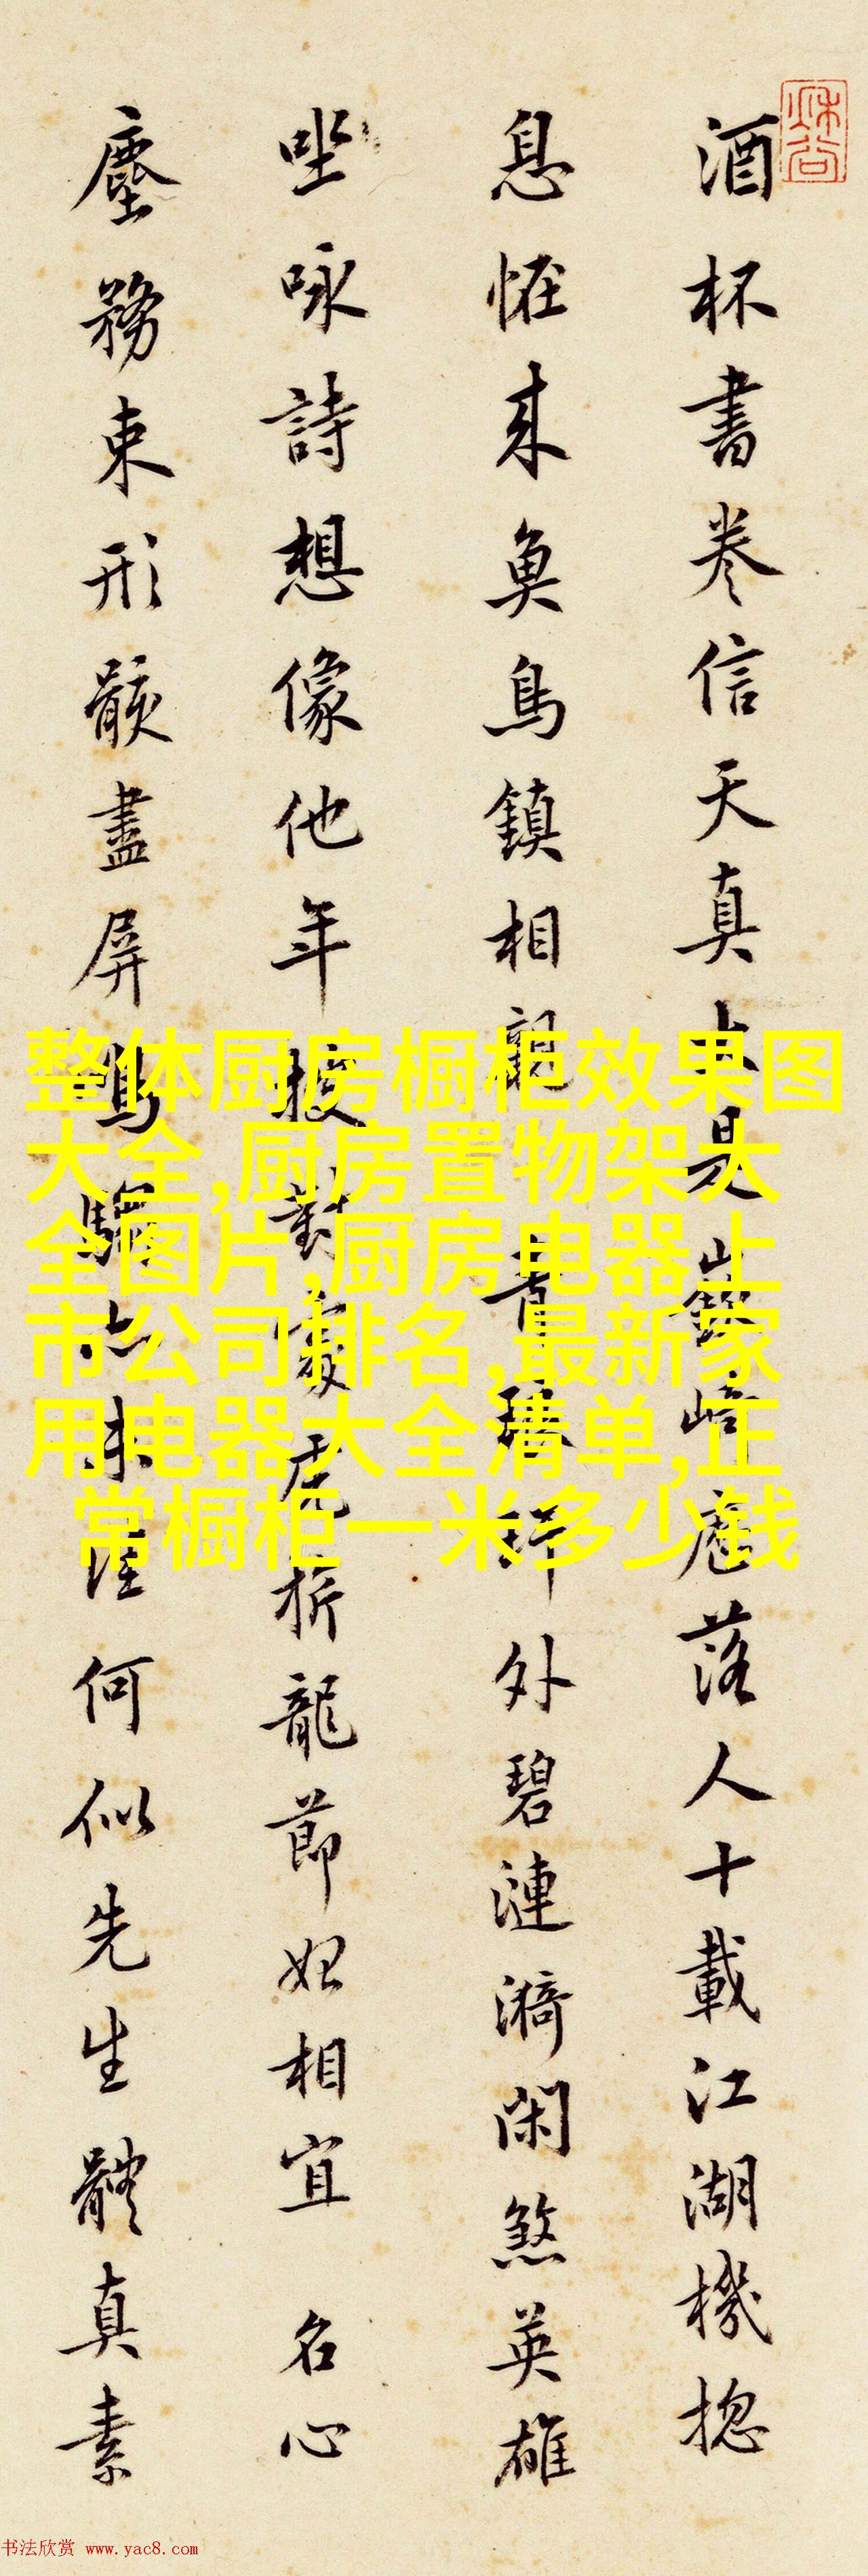 酒杯書卷信天真 是嶔﨑磊落人十載江湖機揔
息怪來魚鳥鎮相親 外碧漣漪閑煞英雄
坐咏詩想像他年 龍節 相宜 名心
塵務束形骸盡屏 何似先生體真素
整体厨房橱柜效果图
大全,厨房置物架大
全图片,厨房电器上
市公司排名,最新家
用电器大全清单,正
常橱柜一米多少钱
书法欣赏 www.yac8.com